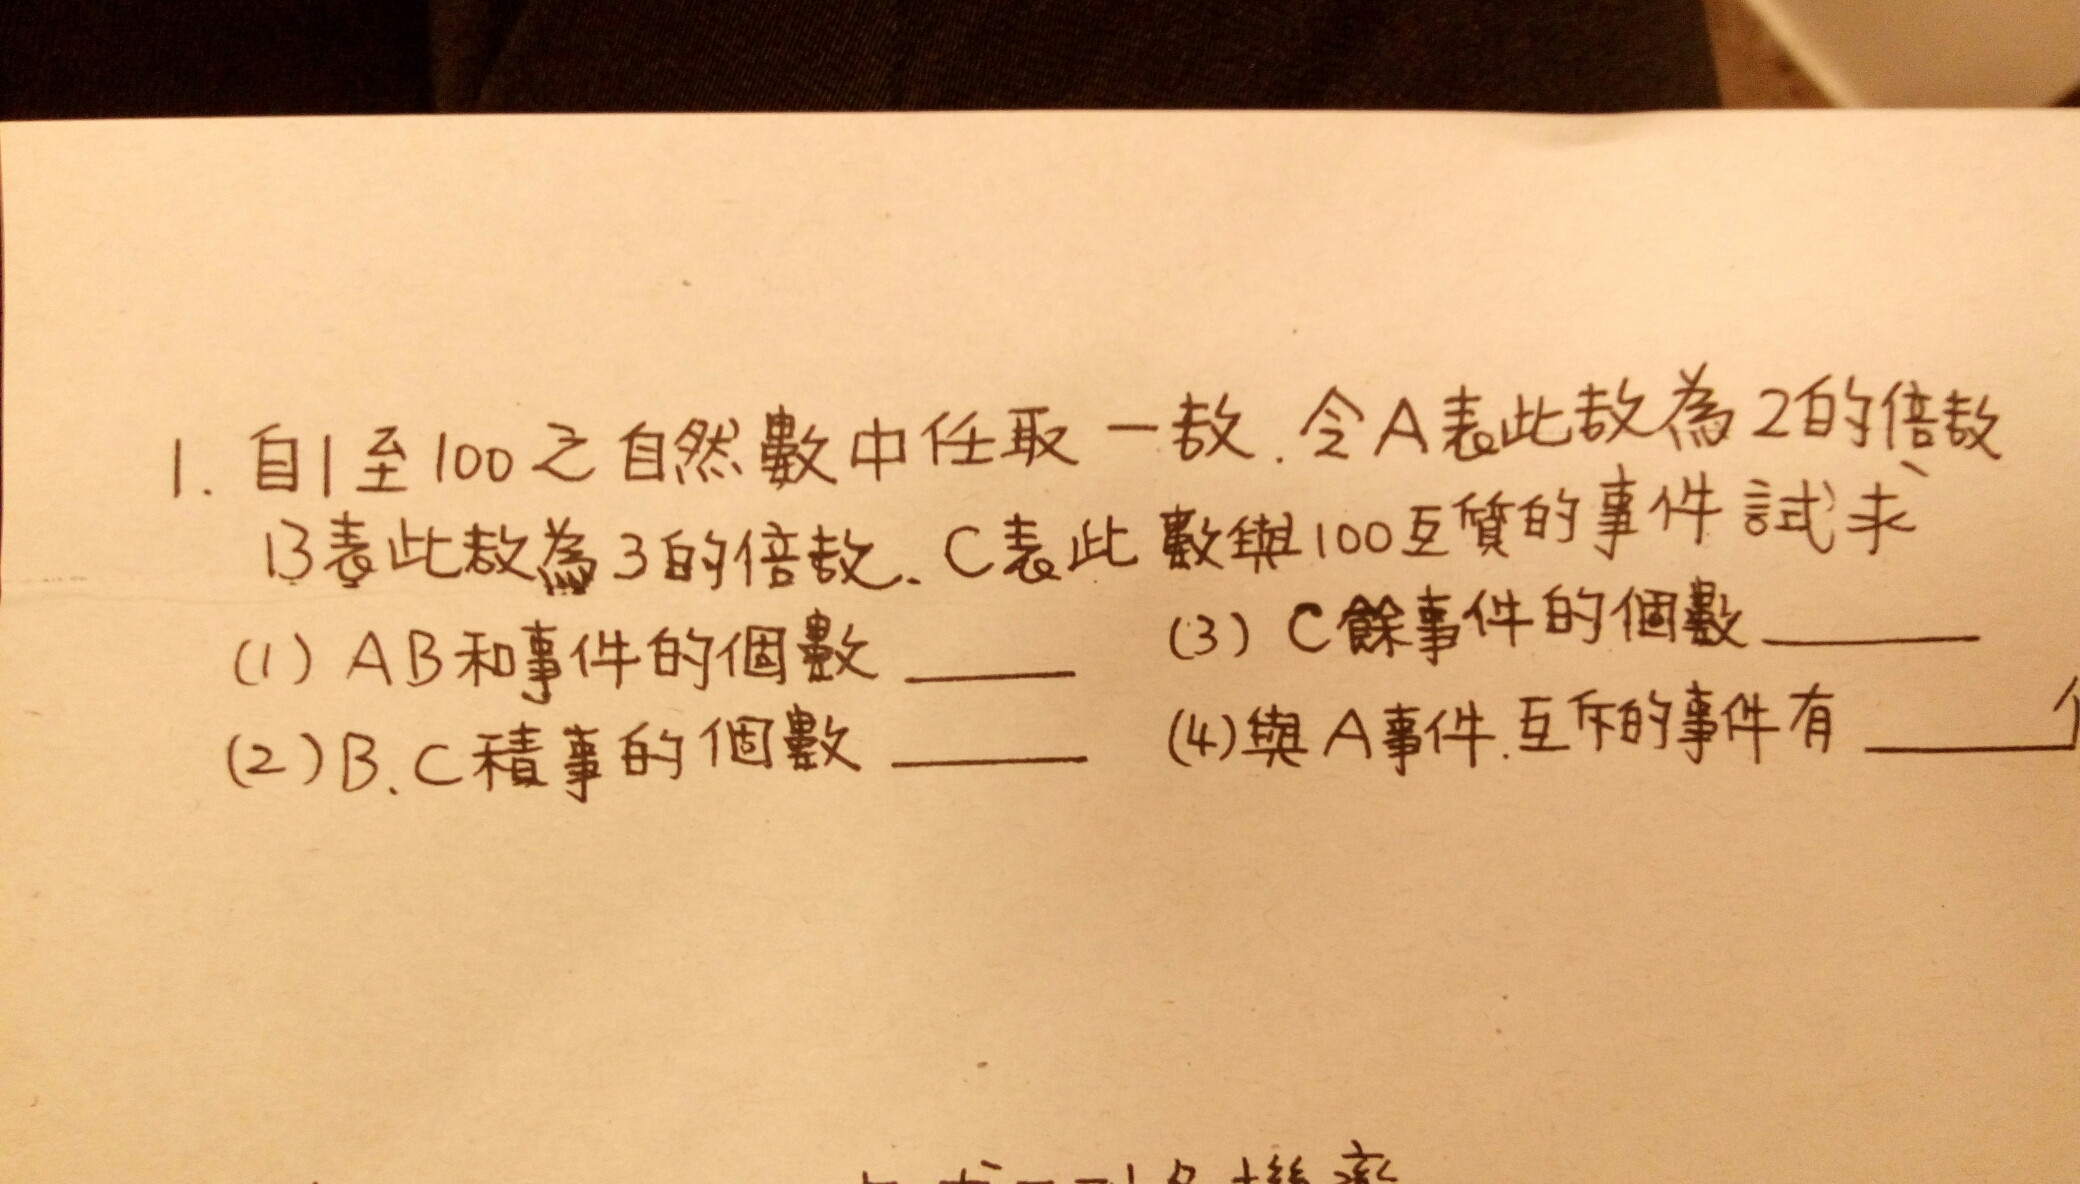 1. 自1至100之自然數中任取一数. 令A表此数為2的倍数、
B表此数為3的倍数、C表此數與100互質的事件 試求
(1) AB和事件的個數 ____ (3) C餘事件的個數 ____
(2) B、C積事的個數 ____ (4) 與A事件.互斥的事件有 ____